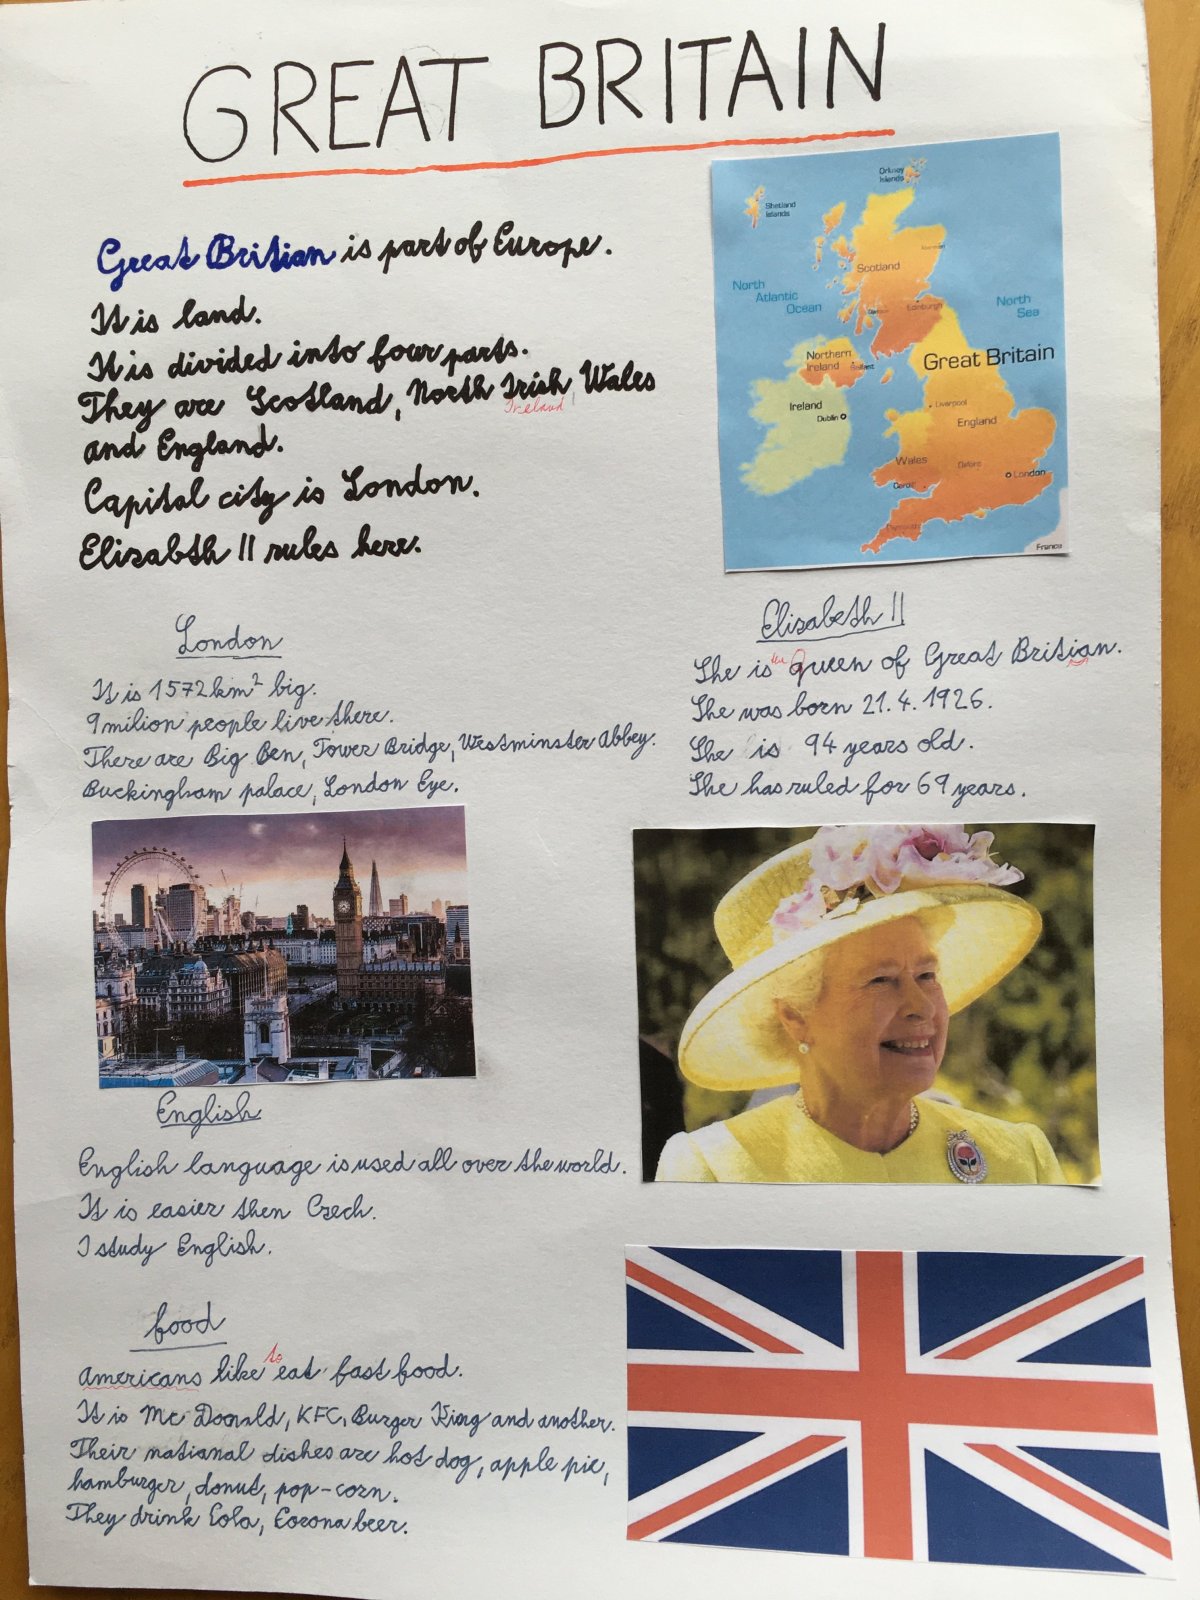 GREAT BRITAIN
Great Britian is part of Europe.
It is land.
It is divided into four parts.
They are Scotland, North Irish, Wales
Ireland!
and England.
Capital city is London.
Elisabth II rules here.
Orkney Islands
Shetland Islands
Aberdeen
Scotland
North Atlantic Ocean
Edinburgh
North Sea
Northern Ireland
Belfast
Great Britain
Ireland
Dublin
Liverpool
England
Wales
Oxford
London
Cardiff
Plymouth
France
London
It is 1572 km² big.
9 milion people live there.
There are Big Ben, Tower Bridge, Westminster Abbey.
Buckingham palace, London Eye.
Elisabeth II
She is the queen of Great Britian.
She was born 21. 4. 1926.
She is 94 years old.
She has ruled for 69 years.
English
English language is used all over the world.
It is easier then Czech.
I study English.
food
Americans like to eat fast food.
It is Mc Donald, KFC, Burger King and another.
Their national dishes are hot dog, apple pie,
hamburger, donut, pop-corn.
They drink Cola, Corona beer.